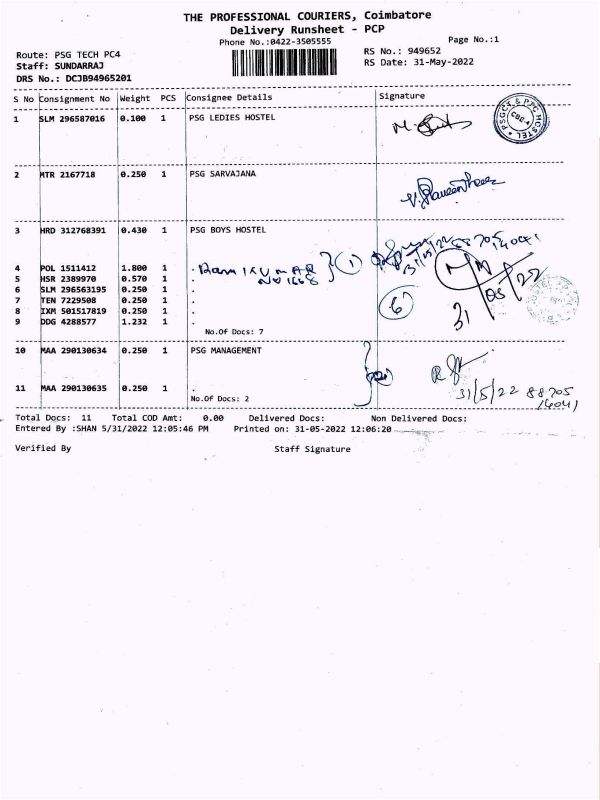 THE PROFESSIONAL COURIERS, Coimbatore
Delivery Runsheet - PCP
Phone No.:0422-3505555
Page No.:1
Route: PSG TECH PC4
RS No.: 949652
Staff: SUNDARRAJ
RS Date: 31-May-2022
DRS No.: DCJB94965201
S No Consignment No Weight PCS Consignee Details Signature
1 SLM 296587016 0.100 1 PSG LEDIES HOSTEL
2 MTR 2167718 0.250 1 PSG SARVAJANA
3 HRD 312768391 0.430 1 PSG BOYS HOSTEL
4 POL 1511412 1.800 1 .
5 HSR 2389970 0.570 1 .
6 SLM 296563195 0.250 1 .
7 TEN 7229508 0.250 1 .
8 IXM 501517819 0.250 1 .
9 DDG 4288577 1.232 1 .
No.Of Docs: 7
31
05
22
10 MAA 290130634 0.250 1 PSG MANAGEMENT
11 MAA 290130635 0.250 1 .
31/5/22 88705
14041
No.Of Docs: 2
Total Docs: 11 Total COD Amt: 0.00 Delivered Docs: Non Delivered Docs:
Entered By :SHAN 5/31/2022 12:05:46 PM Printed on: 31-05-2022 12:06:20
Verified By Staff Signature